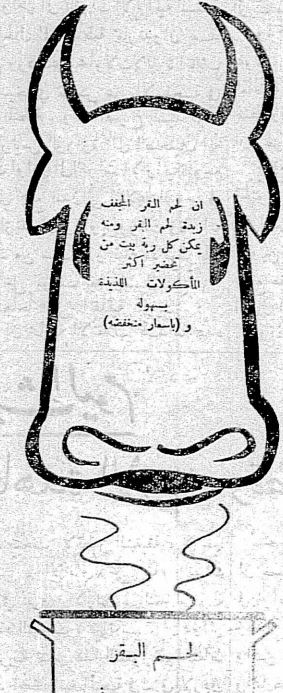 ان لحم البقر المجفف
زبدة لحم البقر ومنه
يمكن كل ربة بيت من
تحضير اكثر
المأكولات اللذيذة
بسهولة
و (باسعار منخفضه)
لحم البقر